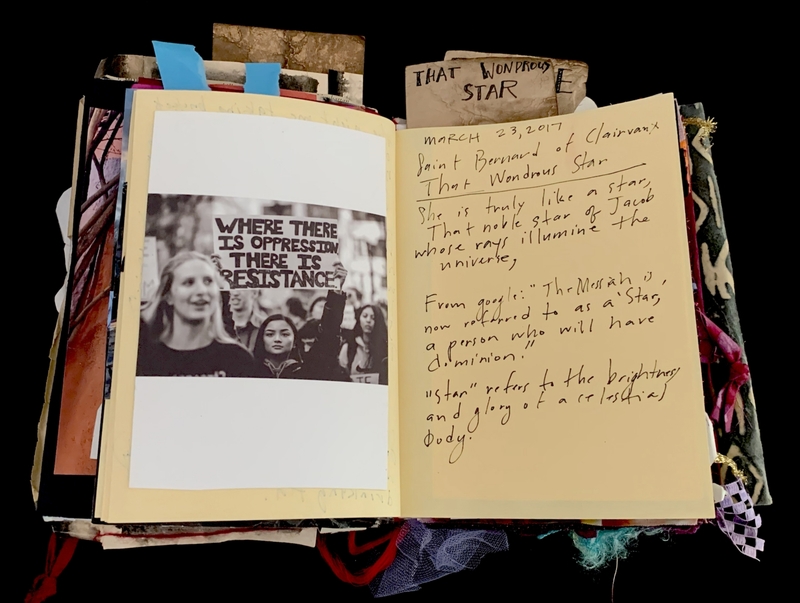 THAT WONDROUS
STAR E
WHERE THERE
IS OPPRESSION
THERE IS
RESISTANCE
MARCH 23, 2017
Saint Bernard of Clairvaux
That Wondrous Star
She is truly like a star,
That noble star of Jacob
whose rays illumine the
universe,
From google: "The Messiah is,
now referred to as a 'Star,
a person who will have
dominion."
"Star" refers to the brightness
and glory of a celestial
body.